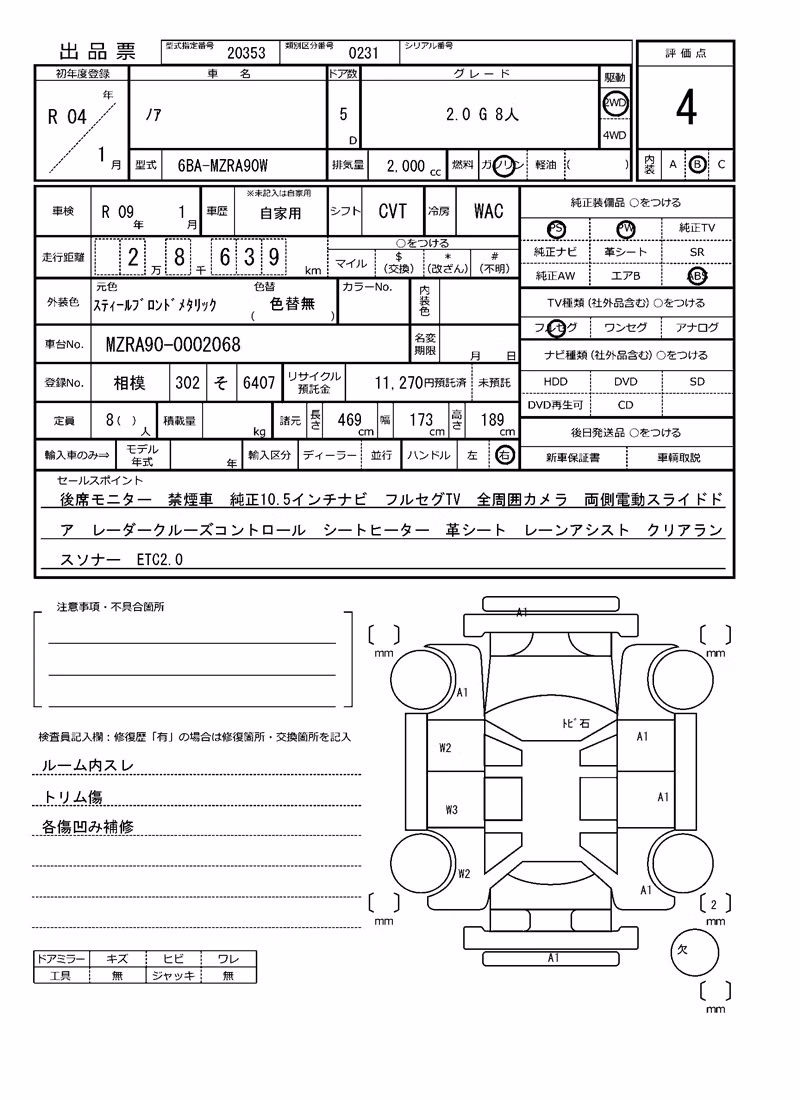 出品票 型式指定番号 20353 類別区分番号 0231 シリアル番号
評価点
4
内装 A B C
初年度登録 車名 ドア数 グレード 駆動
R 04 年 1 月 ﾉｱ 5 D 2.0 G 8人 2WD 4WD
型式 6BA-MZRA90W 排気量 2,000 cc 燃料 ガソリン 軽油 ( )
車検 R 09 年 1 月 車歴 ※未記入は自家用 自家用 シフト CVT 冷房 WAC
走行距離 2 万 8 千 6 3 9 km ○をつける マイル $ (交換) * (改ざん) # (不明)
外装色 元色 ｽﾃｨｰﾙﾌﾞﾛﾝﾄﾞﾒﾀﾘｯｸ 色替 ( 色替無 ) カラーNo. 内装色
車台No. MZRA90-0002068 名変期限 月 日
登録No. 相模 302 そ 6407 リサイクル預託金 11,270円預託済 未預託
定員 8( ) 人 積載量 kg 諸元 長さ 469 cm 幅 173 cm 高さ 189 cm
輸入車のみ⇒ モデル年式 年 輸入区分 ディーラー 並行 ハンドル 左 右
純正装備品 ○をつける
PS PW 純正TV
純正ナビ 革シート SR
純正AW エアB ABS
TV種類(社外品含む)○をつける
フルセグ ワンセグ アナログ
ナビ種類(社外品含む)○をつける
HDD DVD SD
DVD再生可 CD
後日発送品 ○をつける
新車保証書 車輌取説
セールスポイント
後席モニター 禁煙車 純正10.5インチナビ フルセグTV 全周囲カメラ 両側電動スライドド
ア レーダークルーズコントロール シートヒーター 革シート レーンアシスト クリアラン
スソナー ETC2.0
注意事項・不具合箇所
検査員記入欄：修復歴「有」の場合は修復箇所・交換箇所を記入
ルーム内スレ
トリム傷
各傷凹み補修
ドアミラー キズ ヒビ ワレ
工具 無 ジャッキ 無
A1
mm mm
A1
ﾄﾋﾞ石
W2 A1
W3 A1
W2 A1
mm 2 mm
A1 欠
mm